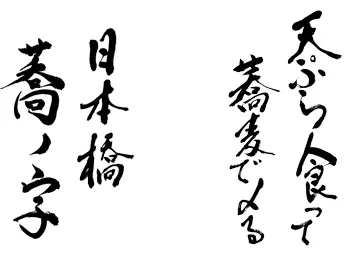 天ぷら食って
蕎麦で〆る
日本橋
蕎ノ字